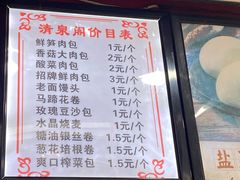 清泉阁价目表
鲜笋肉包 1元/个
香菇大肉包 1元/个
酸菜肉包 1元/个
招牌鲜肉包 1元/个
老面馒头 1元/个
马蹄花卷 1元/个
玫瑰豆沙包 1元/个
水晶烧麦 1元/个
糖油银丝卷 1.5元/个
葱花培根卷 1.5元/个
爽口榨菜包 1.5元/个
盐